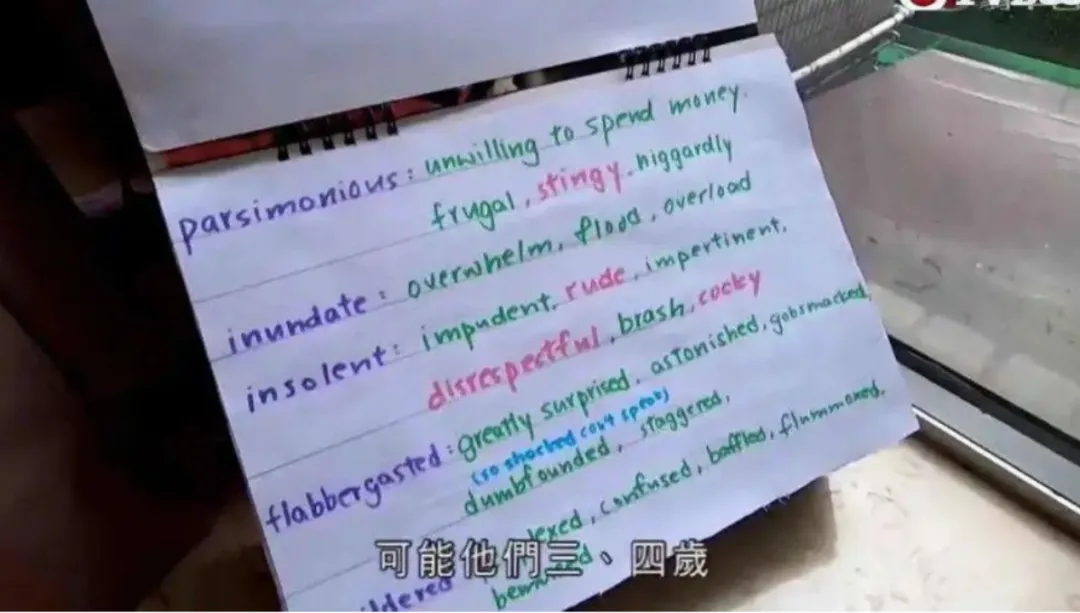 parsimonious: unwilling to spend money.
frugal, stingy. niggardly
inundate: overwhelm, flood, overload
insolent: impudent, rude, impertinent,
disrespectful, brash, cocky
flabbergasted: greatly surprised, astonished, gobsmacked,
(so shocked can't speak)
dumbfounded, staggered,
confused, baffled, flummoxed,
可能他們三、四歲